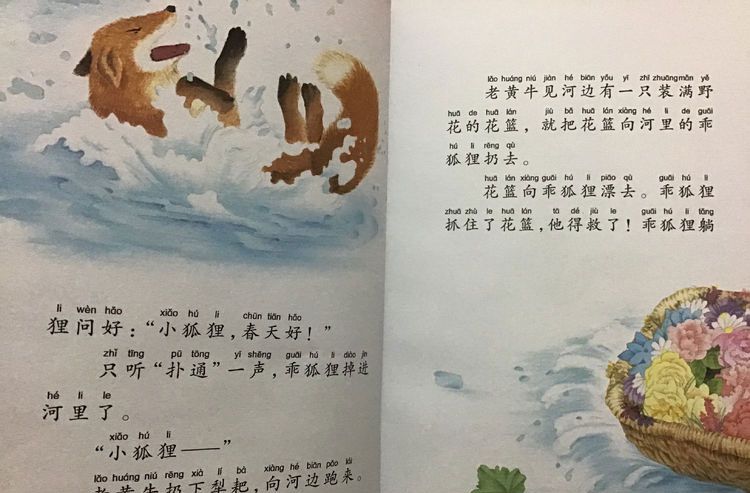 li wèn hǎo xiǎo hú li chūn tiān hǎo
狸问好：“小狐狸，春天好！”
zhǐ tīng pū tōng yì shēng guāi hú li diào jìn
只听“扑通”一声，乖狐狸掉进
hé li le
河里了。
xiǎo hú li
“小狐狸——”
lǎo huáng niú rēng xià lí bà xiàng hé biān pǎo lái
老黄牛扔下犁耙，向河边跑来。
lǎo huáng niú jiàn hé biān yǒu yì zhī zhuāng mǎn yě
老黄牛见河边有一只装满野
huā de huā lán jiù bǎ huā lán xiàng hé li de guāi
花的花篮，就把花篮向河里的乖
hú li rēng qù
狐狸扔去。
huā lán xiàng guāi hú li piāo qù guāi hú li
花篮向乖狐狸漂去。乖狐狸
zhuā zhù le huā lán tā dé jiù le guāi hú li tǎng
抓住了花篮，他得救了！乖狐狸躺